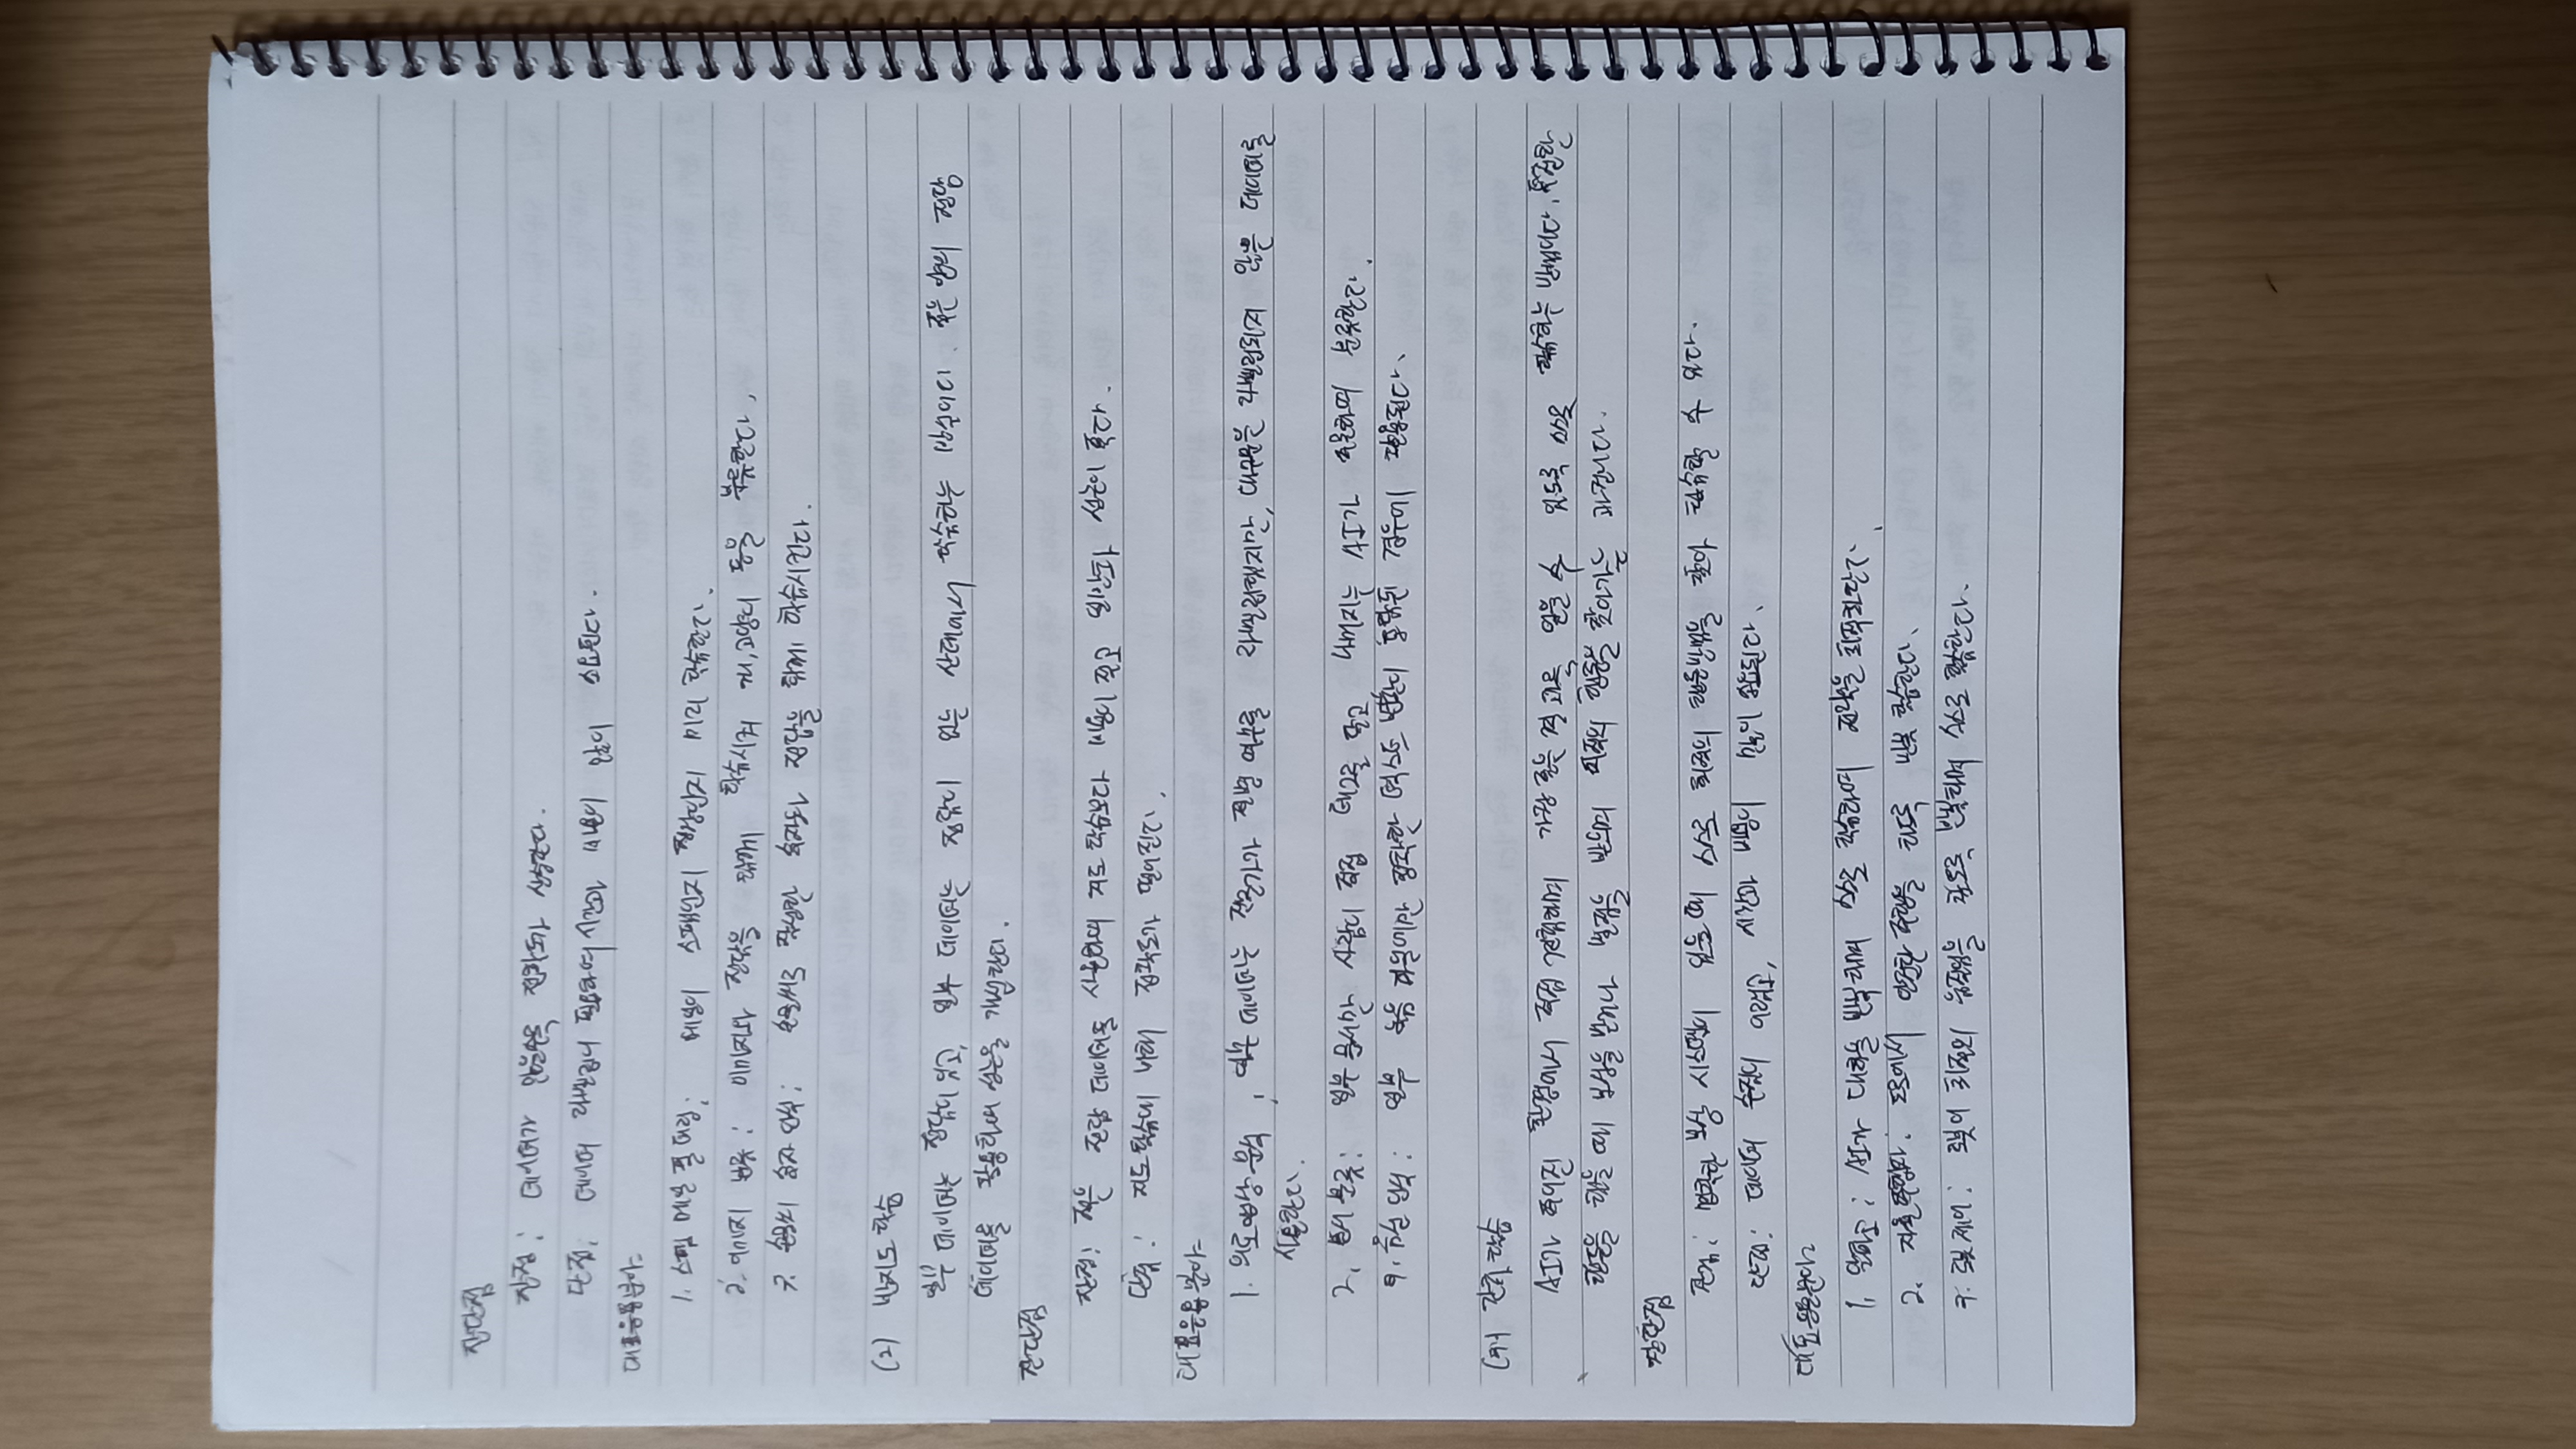 장단점
장점: 데이터가 많을수록 정확도가 상승한다.
단점: 데이터 라벨링이 필요하여 시간과 비용이 많이 소요된다.
대표응용분야
1. 스팸 메일 필터링: 메일이 스팸인지 정상인지 미리 학습한다.
2. 이미지 분류: 이미지와 정답을 함께 학습시켜 개, 고양이 등을 분류한다.
3. 손글씨 숫자 인식: 손글씨로 작성한 숫자와 정답을 함께 학습시킨다.
(2) 반지도 학습
일부 데이터는 정답이 있고, 일부 데이터는 정답이 없는 상태에서 학습하는 방식이다. 적은 양의 정답
데이터를 활용하여 성능을 개선한다.
장단점
장점: 적은 정답 데이터를 사용하여 지도 학습보다 비용이 적고 성능이 좋다.
단점: 지도학습에 비해 정확도가 떨어진다.
대표응용분야
1. 의료영상 분석: 일부 데이터는 전문가가 질병 여부를 라벨링했지만, 대부분은 라벨링되지 않은 데이터를
사용한다.
2. 문서 분류: 일부 문서만 사람이 직접 태그를 달고, 나머지는 AI가 분류한다.
3. 음성 인식: 일부 녹음 파일에만 정확한 텍스트 변환이 포함된 경우에 활용된다.
(3) 강화 학습
AI가 주어진 환경에서 직접 경험하며 가장 좋은 결과를 얻을 수 있도록 스스로 학습하는 방법이다. 특정한
행동을 했을 때 보상을 받거나 벌점을 받으며 최적의 행동을 찾아가는 과정이다.
장단점
장점: 명확한 보상 시스템이 있을 때 스스로 최적의 행동방법을 찾아 학습할 수 있다.
단점: 데이터 수집이 어렵고, 시간과 비용이 많이 소요된다.
대표응용분야
1. 알파고: AI가 대국을 반복하며 스스로 학습하여 전략을 최적화한다.
2. 자율주행차: 도로에서 안전한 주행을 하도록 반복 학습한다.
3. 로봇 제어: 로봇이 최적의 움직임을 찾도록 반복하며 스스로 학습한다.